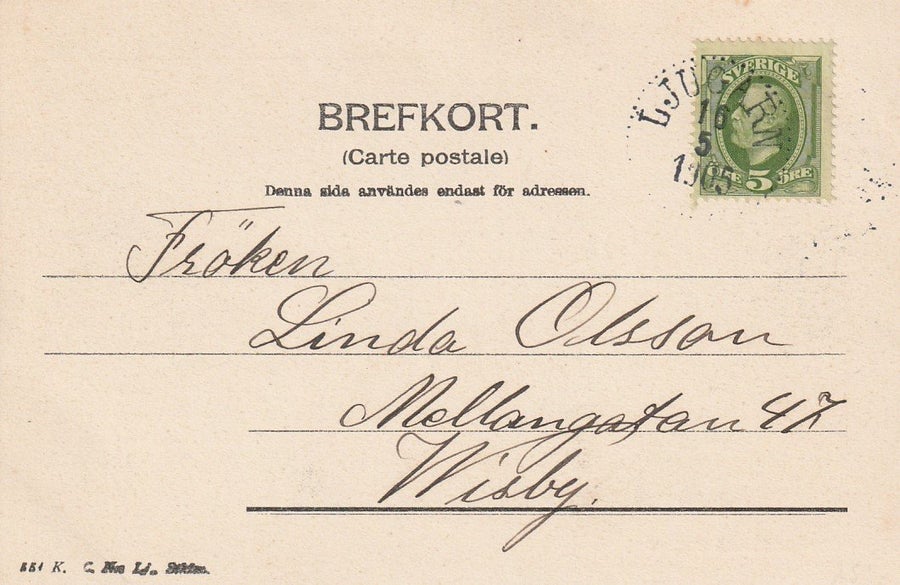 BREFKORT.
(Carte postale)
Denna sida användes endast för adressen.
SVERIGE
5 ÖRE
LJUGARN
16
5
1905
Fröken
Linda Olsson
Mellangatan 47
Wisby.
551 K.